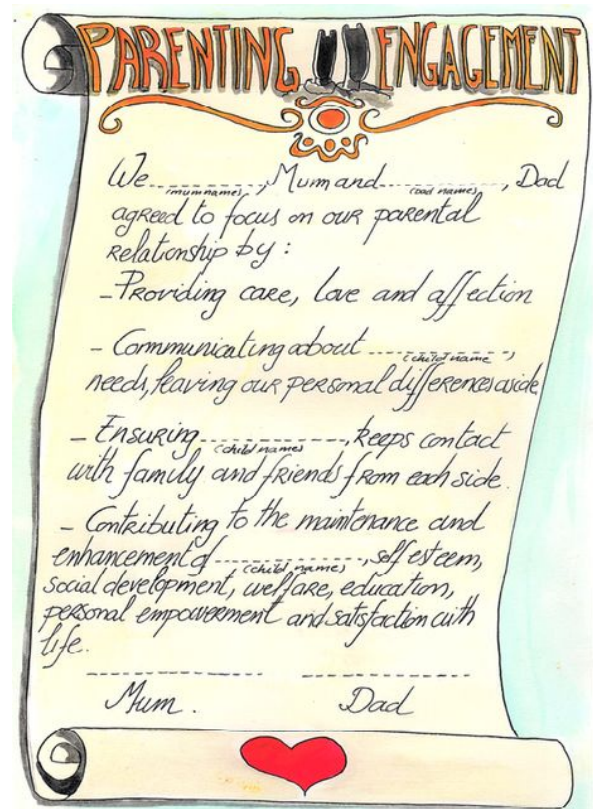 PARENTING ENGAGEMENT
We ------------, Mum and ------------, Dad
(mum names) (dad name)
agreed to focus on our parental
relationship by :
- Providing care, love and affection
- Communicating about ------------,
(child name
needs, leaving our personal differences aside
- Ensuring ------------, keeps contact
(child names)
with family and friends from each side.
- Contributing to the maintenance and
enhancement of ------------, self esteem,
(child name)
social development, welfare, education,
personal empowerment and satisfaction with
life.
------------ ------------
Mum. Dad